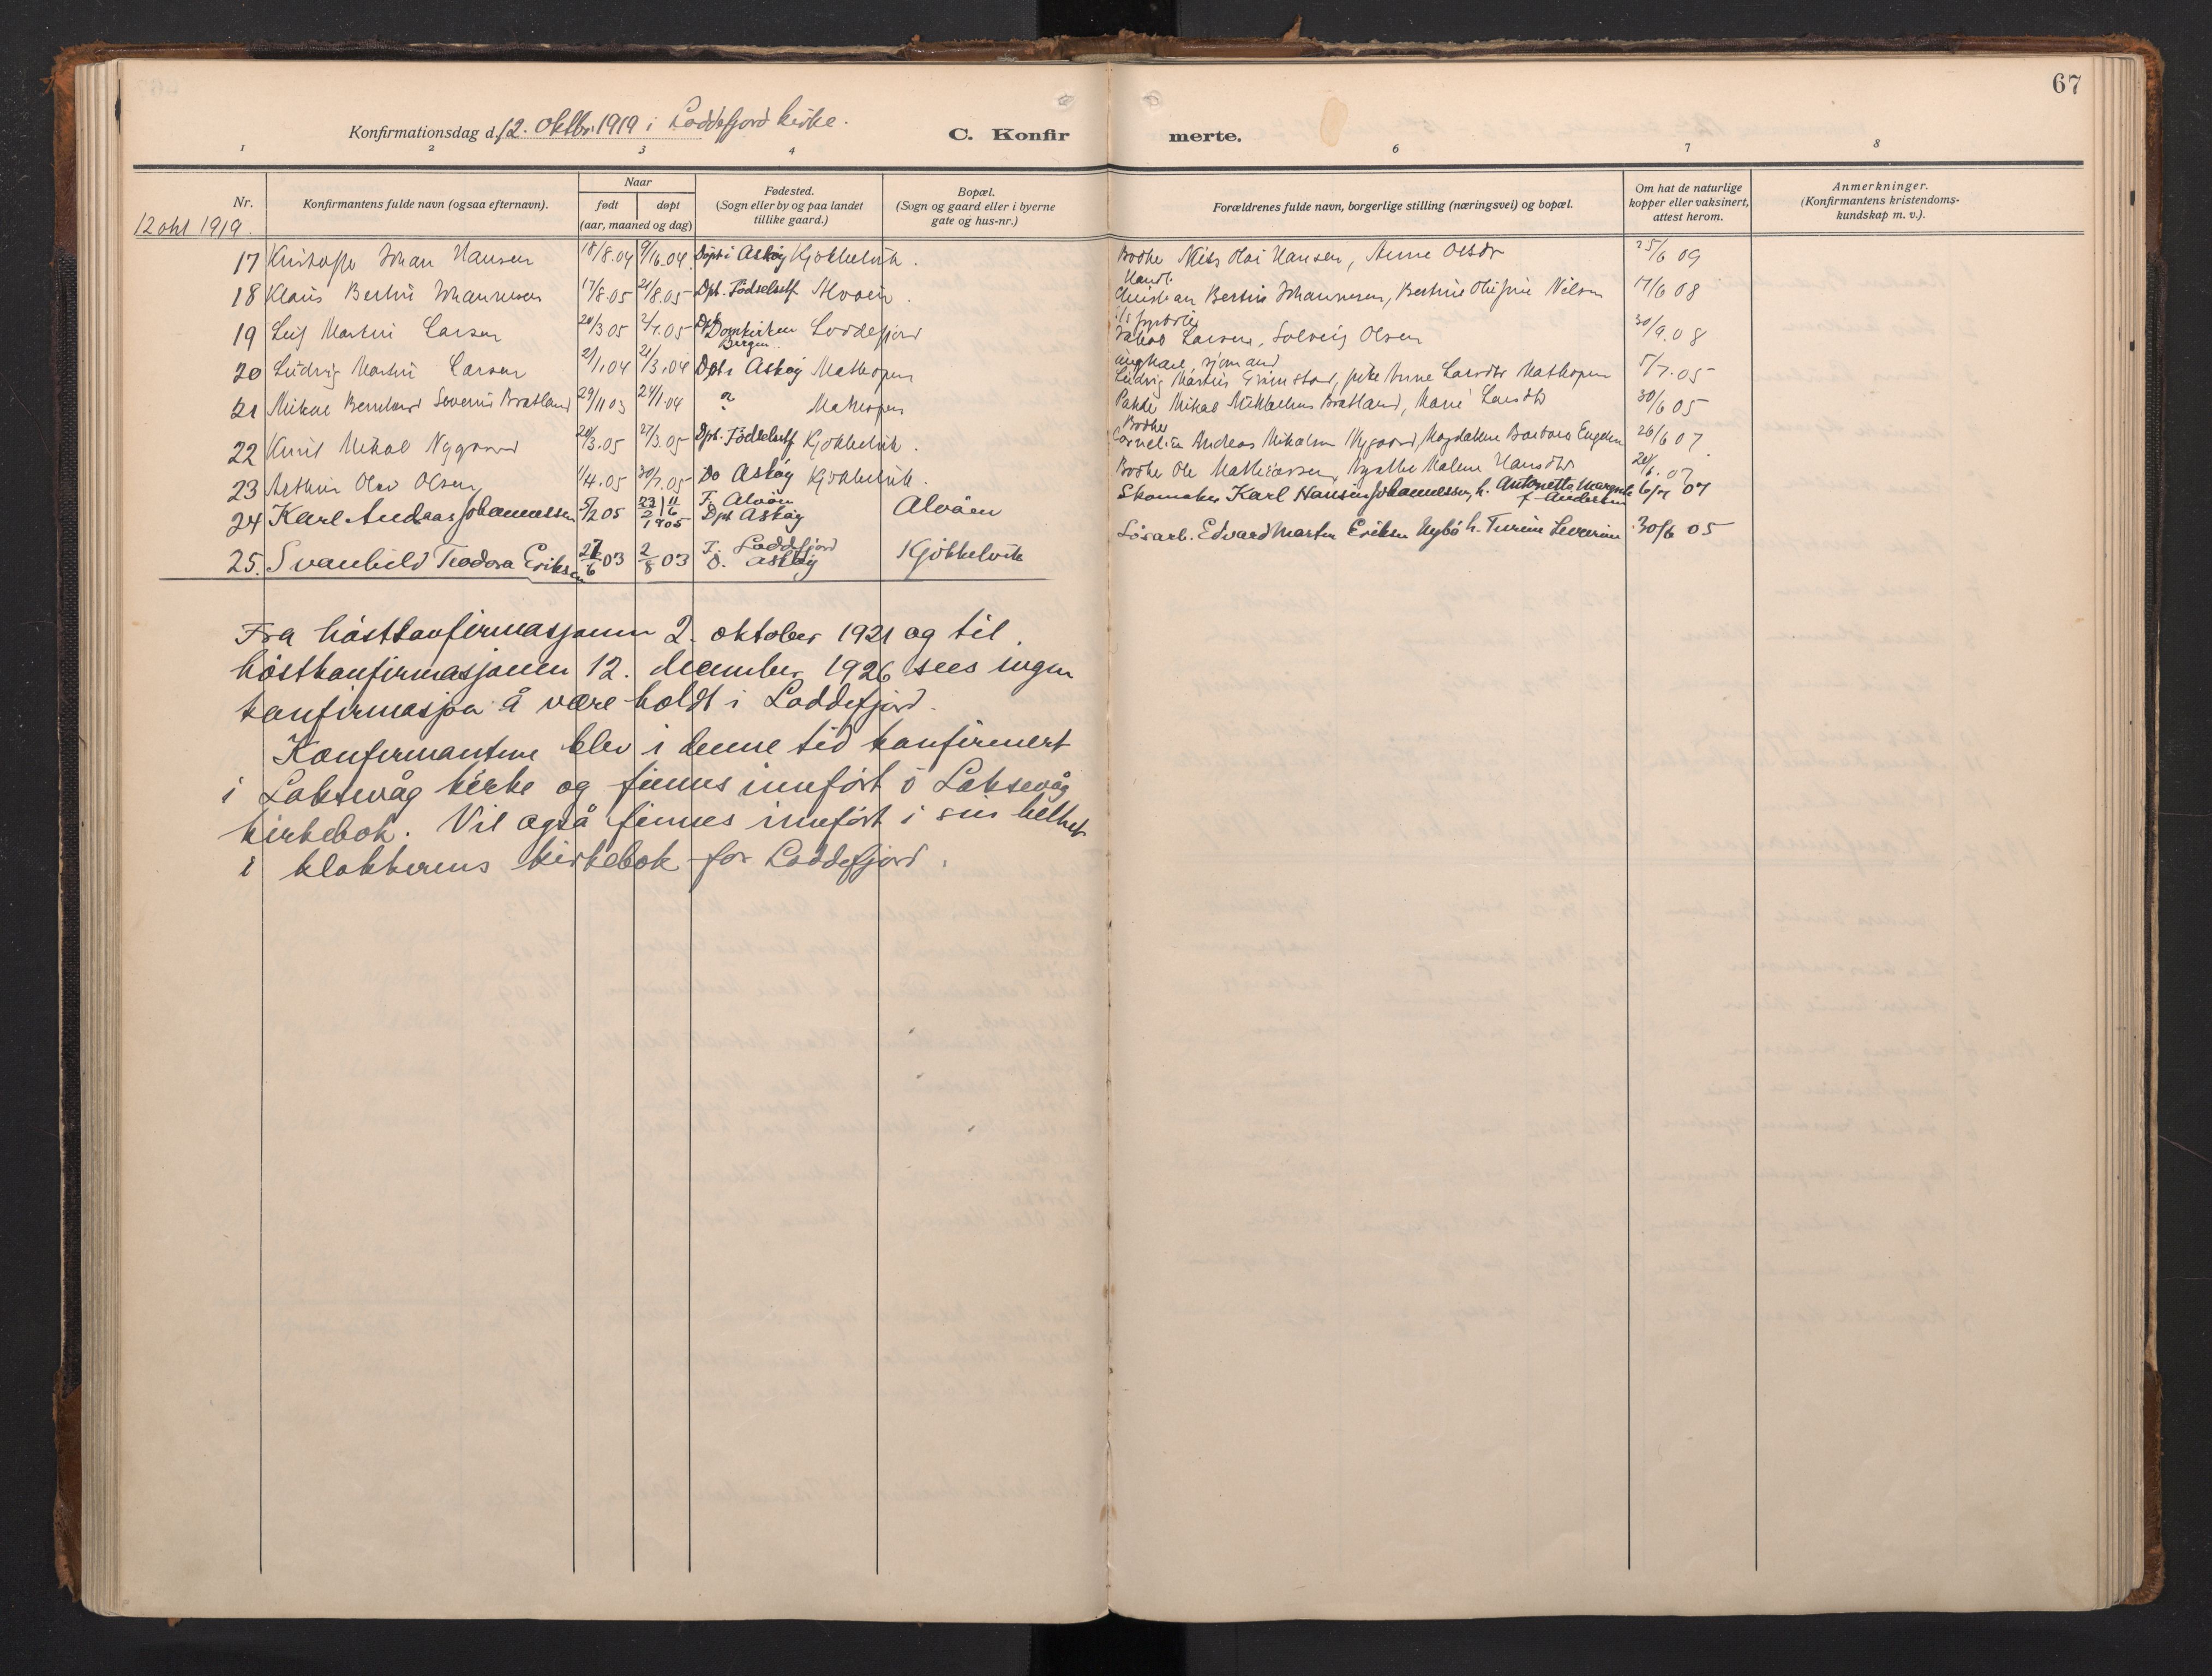 67
Konfirmationsdag d. 12. oktbr. 1919 i Loddefjord kirke.
C. Konfirmerte.
1 2 3 4 6 7 8
Nr.
Konfirmantens fulde navn (ogsaa efternavn).
Naar
født døpt
(aar, maaned og dag)
Fødested.
(Sogn eller by og paa landet
tillike gaard.)
Bopæl.
(Sogn og gaard eller i byerne
gate og hus-nr.)
Forældrenes fulde navn, borgerlige stilling (næringsvei) og bopæl.
Om hat de naturlige
kopper eller vaksinert,
attest herom.
Anmerkninger.
(Konfirmantens kristendoms-
kundskap m. v.).
12 okt 1919.
17 Johan Hansen 18/8.04 Døpt i Askøy Kjøkkelvik. Hansen, Anne Olsdr 25/6 09
18 Klaus Bertin Johannesen 17/8.05 21/8.05 Dpt. Fødselsstf Alvøen. Bertin Johannesen, Nilsen 17/6 08
19 Leif Martin Larsen 20/3 05 Domkirken Bergen Loddefjord Larsen, Solveig Olsen 30/9.08
20 Ludvig Martin Larsen 21/3.04 Dpt i Askøy Mathopen Ungkarl, sjømand Ludvig Martin Grimstad, pike Anne Larsdtr Mathopen 5/7.05
21 Mikal Bernhard Severin Bratland 29/11 03 24/1.04 Mathopen Mikal Bratland, Marie Larsdtr 30/6 05
22 Mikal Nygaard 20/3.05 27/3.05 Dpt. Fødselsstf Kjøkkelvik. Bødker Andreas Mikalsen Nygaard, Magdalene Barbara 26/6 07
23 Arthur Olav Olsen 1/4.05 30/7.05 Do Askøy Kjøkkelvik. Bødker Ole Malene Hansdtr
24 Karl Andreas Johannessen 5/2 05 1905 F. Alvøen Dpt Askøy Alvøen Skomaker Karl Hansen Johannessen, h. Antonette Margrete f. Andersen 6/7 07
25. Svanhild Teodora Eriksen 27/6 03 2/8 03 F. Loddefjord D. Askøy Kjøkkelvik Løsarb. Edvard Martin Eriksen Nybø h. Turine Severine 30/6 05
Fra høstkonfirmasjonen 2. oktober 1921 og til
høstkonfirmasjonen 12. december 1926 sees ingen
konfirmasjon å være holdt i Loddefjord.
Konfirmantene blev i denne tid konfirmert
i Laksevåg kirke og finnes innført i Laksevåg
kirkebok. Vil også finnes innført i sin helhet
i klokkerens kirkebok for Loddefjord.